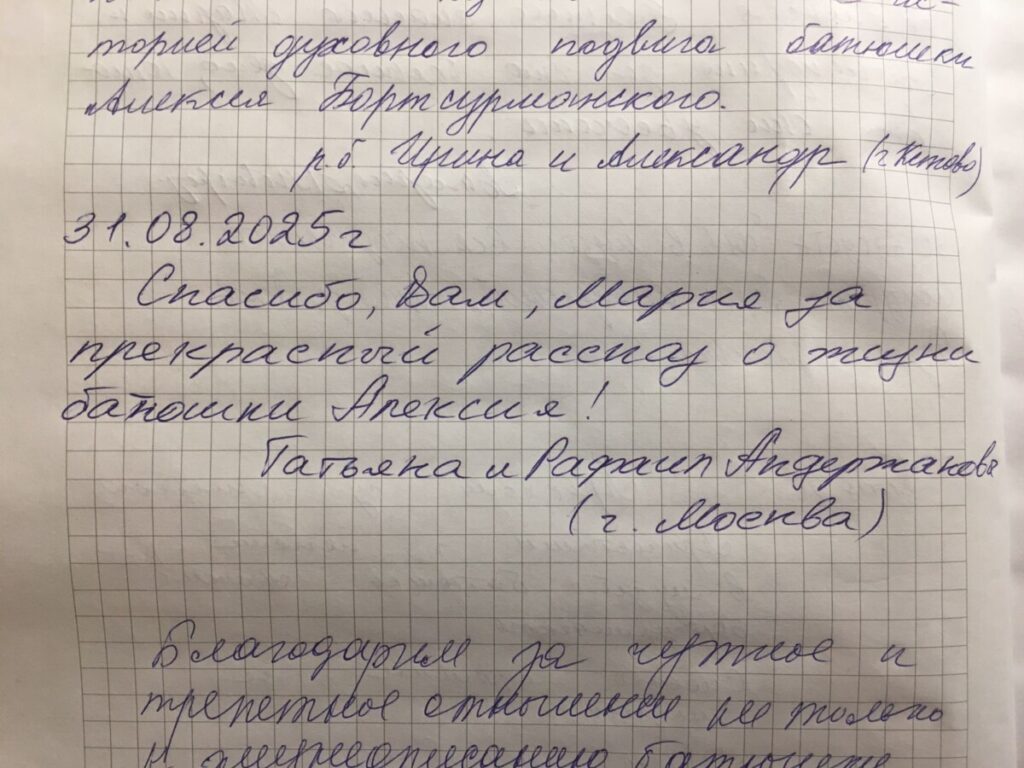 торией духовного подвига батюшки
Алексея Бортсурманского.
рб Ирина и Александр (г. Кстово)
31.08.2025г
Спасибо, Вам, Мария за
прекрасный рассказ о жизни
батюшки Алексия!
Татьяна и Рафаил Андержановы
(г. Москва)
Благодарим за чуткое и
трепетное отношение не только
к жизнеописанию батюшки